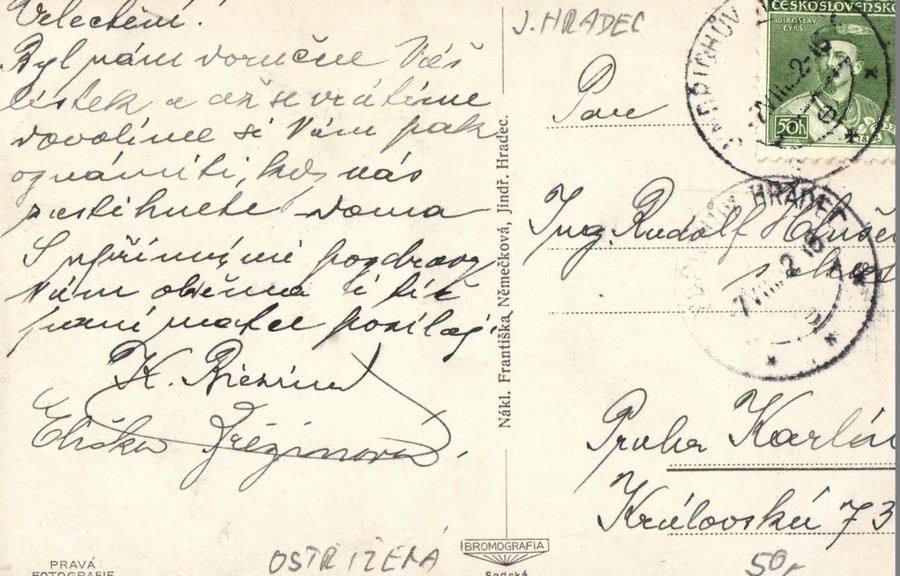 Velectění!
Byl nám doručen Váš
lístek a až se vrátíme
dovolíme si Vám pak
oznámiti, kdy nás
zastihnete doma
S upřímnými pozdravy
Vám oběma i též
paní matce posílají
K.
Eliška
PRAVÁ
FOTOGRAFIE
OSTŘIŽENÁ
Nákl. Františka Němečková, Jindř. Hradec.
BROMOGRAFIA
Sadská
J. HRADEC
ČESKOSLOVENSKO
MIROSLAV
TYRŠ
50h
1832
JINDŘICHŮV
7.VIII.
HRADEC
7.VIII.
Pan
Ing. Rudolf
s chotí
Praha Karlín
Královská 73
50,-